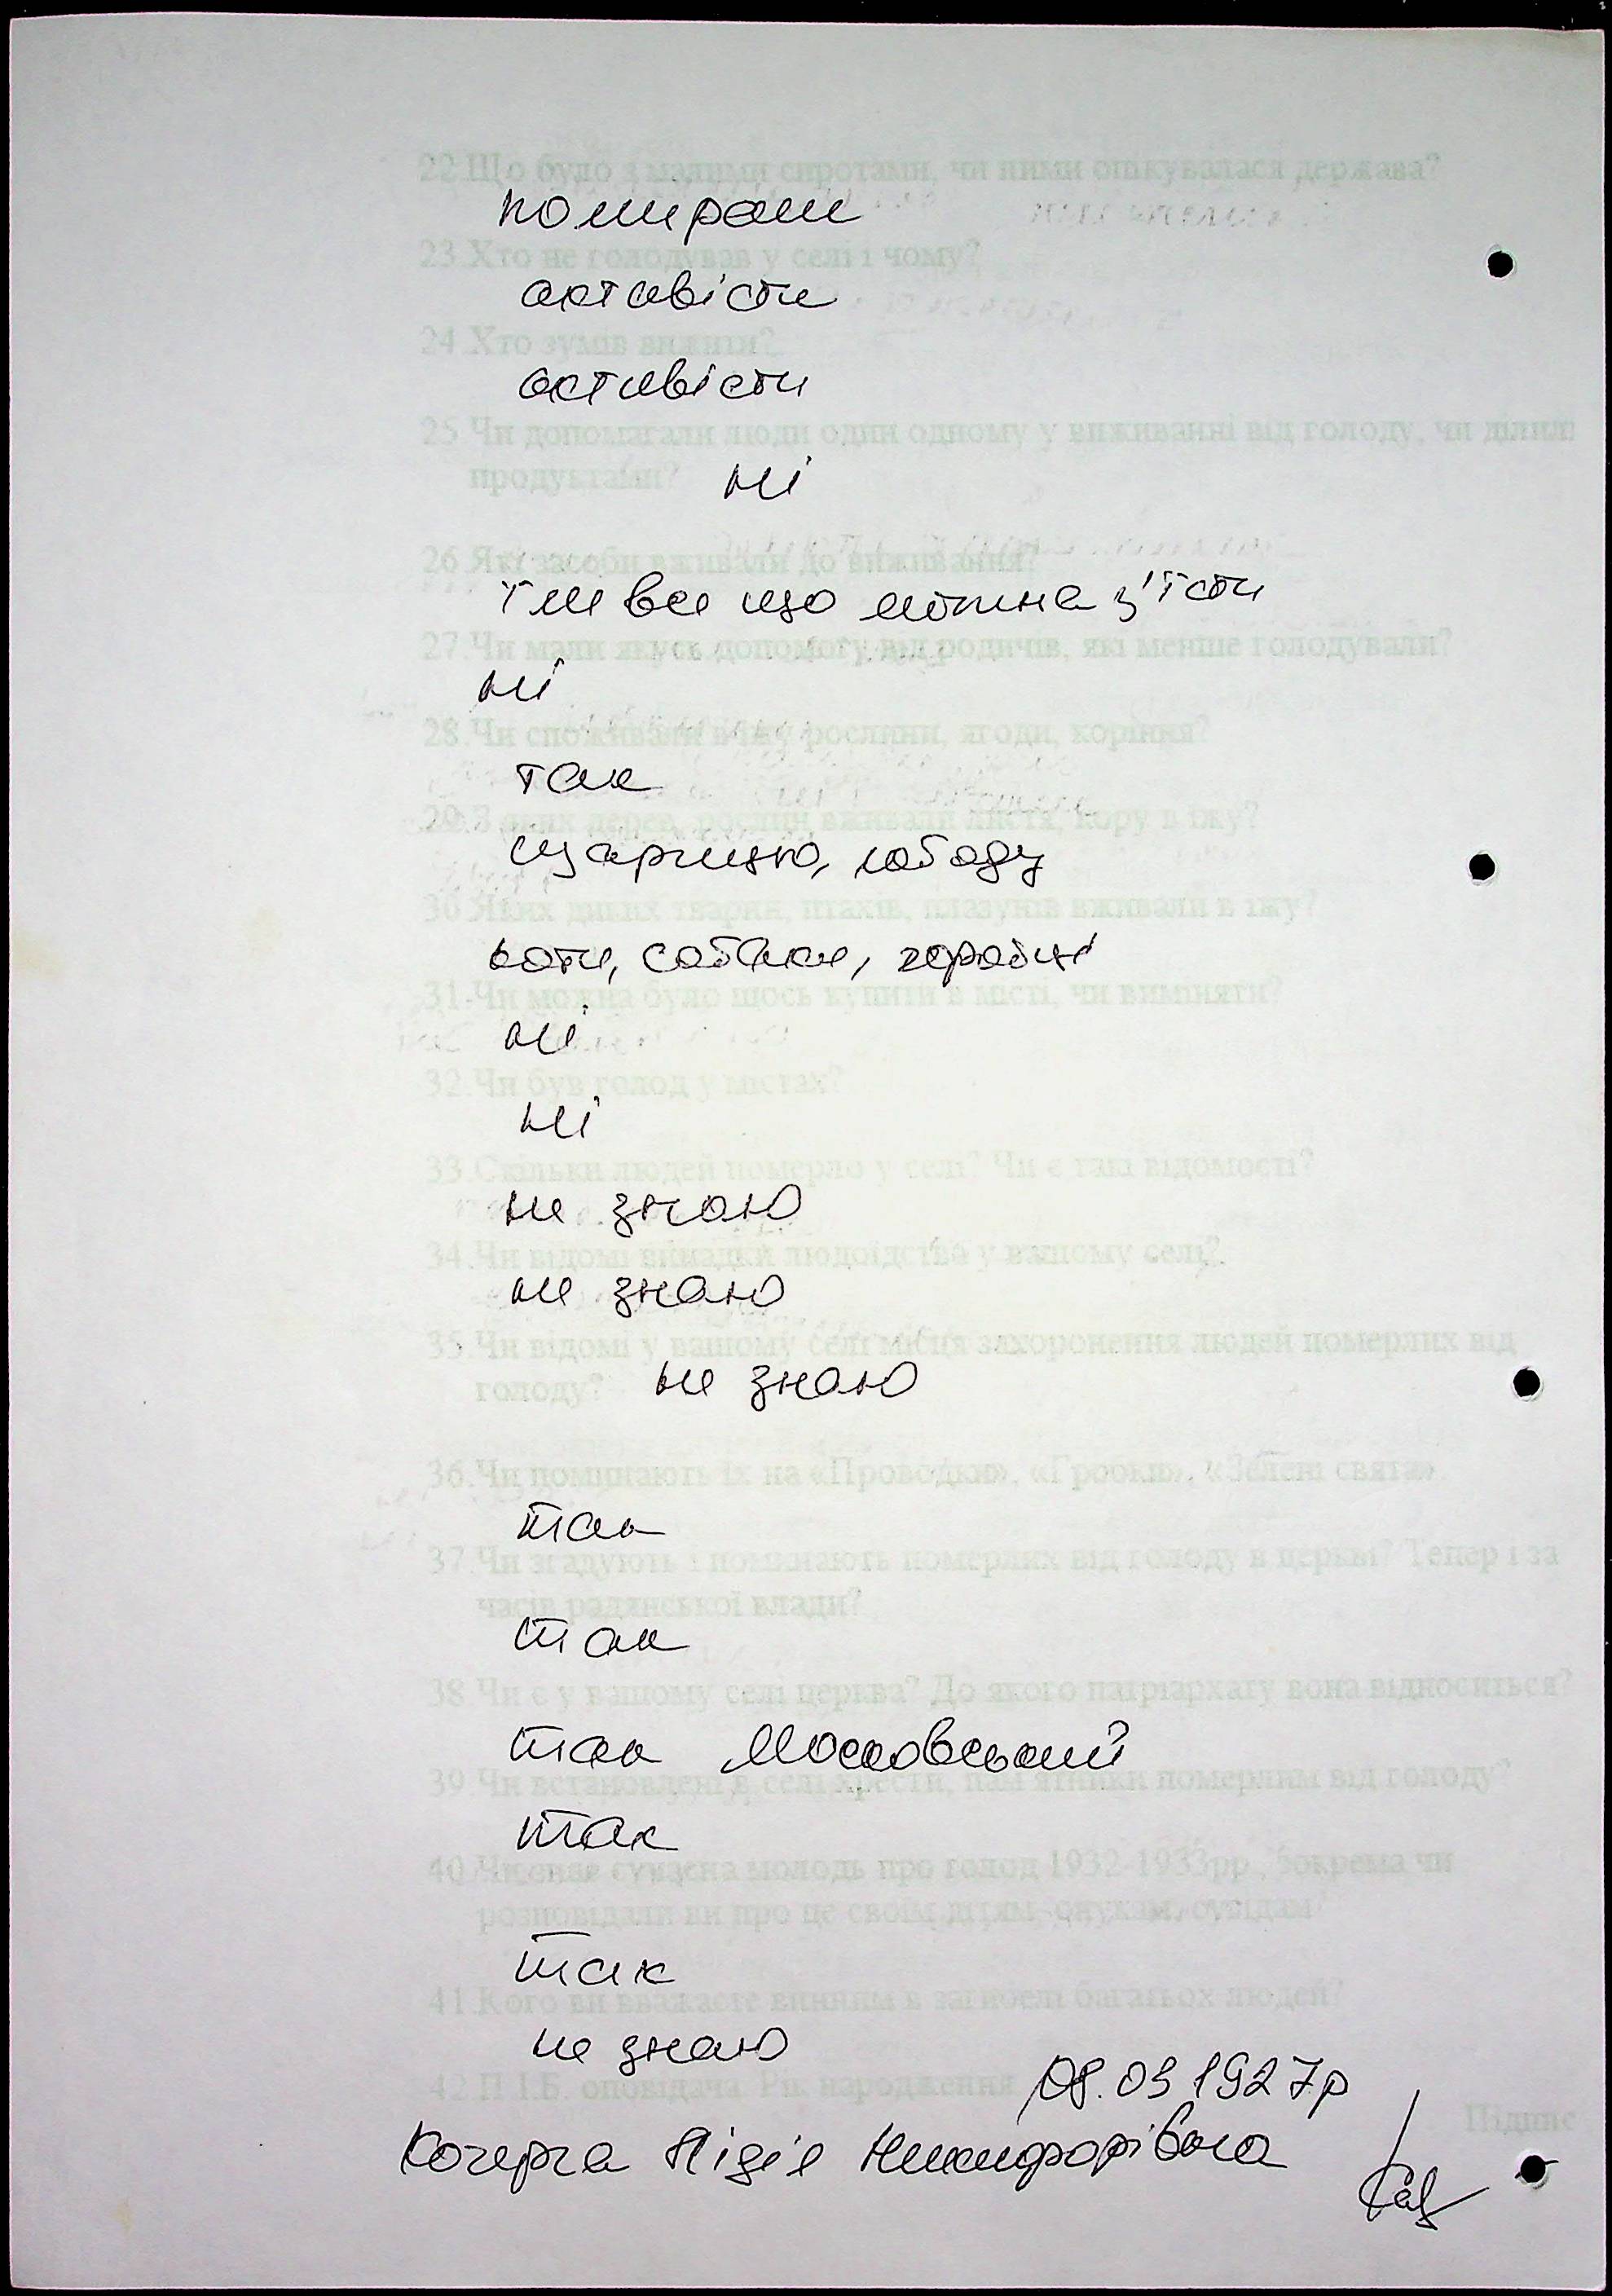 22.Що було з малими сиротами, чи ними опікувалася держава?
помирали
23.Хто не голодував у селі і чому?
активісти
24.Хто зумів вижити?
активісти
25.Чи допомагали люди один одному у виживанні від голоду, чи ділили
продуктами? ні
26.Які засоби вживали до виживання?
їли все що можна з'їсти
27.Чи мали якусь допомогу від родичів, які менше голодували?
ні
28.Чи споживали в їжу рослини, ягоди, коріння?
так
29.З яких дерев, рослин вживали листя, кору в їжу?
щирицю, лободу
30.Яких диких тварин, птахів, плазунів вживали в їжу?
коти, собаки, горобці
31.Чи можна було щось купити в місті, чи виміняти?
ні
32.Чи був голод у містах?
ні
33.Скільки людей померло у селі? Чи є такі відомості?
не знаю
34.Чи відомі випадки людоїдства у вашому селі?
не знаю
35.Чи відомі у вашому селі місця захоронення людей померлих від
голоду? не знаю
36.Чи поминають їх на «Проводки», «Гробки», «Зелені свята».
так
37.Чи згадують і поминають померлих від голоду в церкві? Тепер і за
часів радянської влади?
так
38.Чи є у вашому селі церква? До якого патріархату вона відноситься?
так Московський
39.Чи встановлені в селі хрести, пам'ятники померлим від голоду?
так
40.Чи знає сучасна молодь про голод 1932-1933рр., зокрема чи
розповідали ви про це своїм дітям, онукам, сусідам?
так
41.Кого ви вважаєте винним в загибелі багатьох людей?
не знаю
42.П.І.Б. оповідача. Рік народження 08.03 1927р
Підпис
Кочерга Лідія Никифорівна